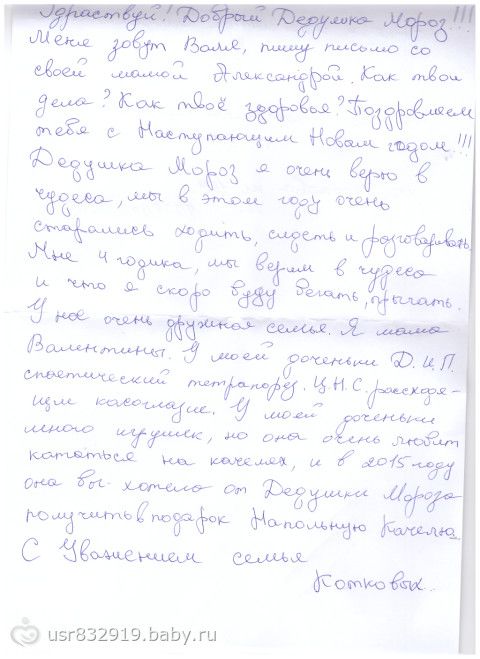 Здраствуй! Добрый Дедушка Мороз!!!
Меня зовут Валя, пишу письмо со
своей мамой Александрой. Как твои
дела? Как твоё здоровье? Поздровляем
тебя с Наступающим Новым годом!!!
Дедушка Мороз я очень верю в
чудеса, мы в этом году очень
старались ходить, сидеть и разговаривать.
Мне 4 годика, мы верим в чудеса
и что я скоро буду бегать, прыгать.
У нас очень дружная семья. Я мама
Валентины. У моей доченьки Д.Ц.П.
спастический тетрапорез. Ц.Н.С. расходя-
щим косоглазие. У моей доченьки
много игрушек, но она очень любит
кататься на качелях, и в 2015 году
она бы хотела от Дедушки Мороза
получить в подарок Напольную Качелю.
С Уважением семья
Котковых.
usr832919.baby.ru